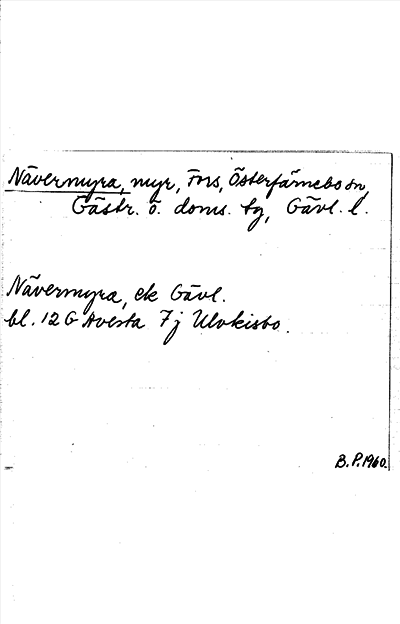 Nävermyra, myr, Fors, Österfärnebo sn,
Gästr. ö. doms. tg, Gävl. l.
Nävermyra, ek Gävl.
bl. 12 G Avesta 7 j Ulvkisbo.
B.P. 1960.